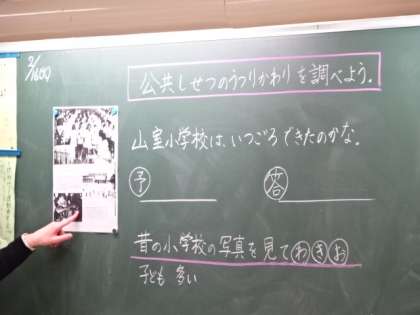 公共しせつのうつりかわりを調べよう。
山室小学校は、いつごろできたのかな。
予 答
昔の小学校の写真を見てわきお
子ども 多い